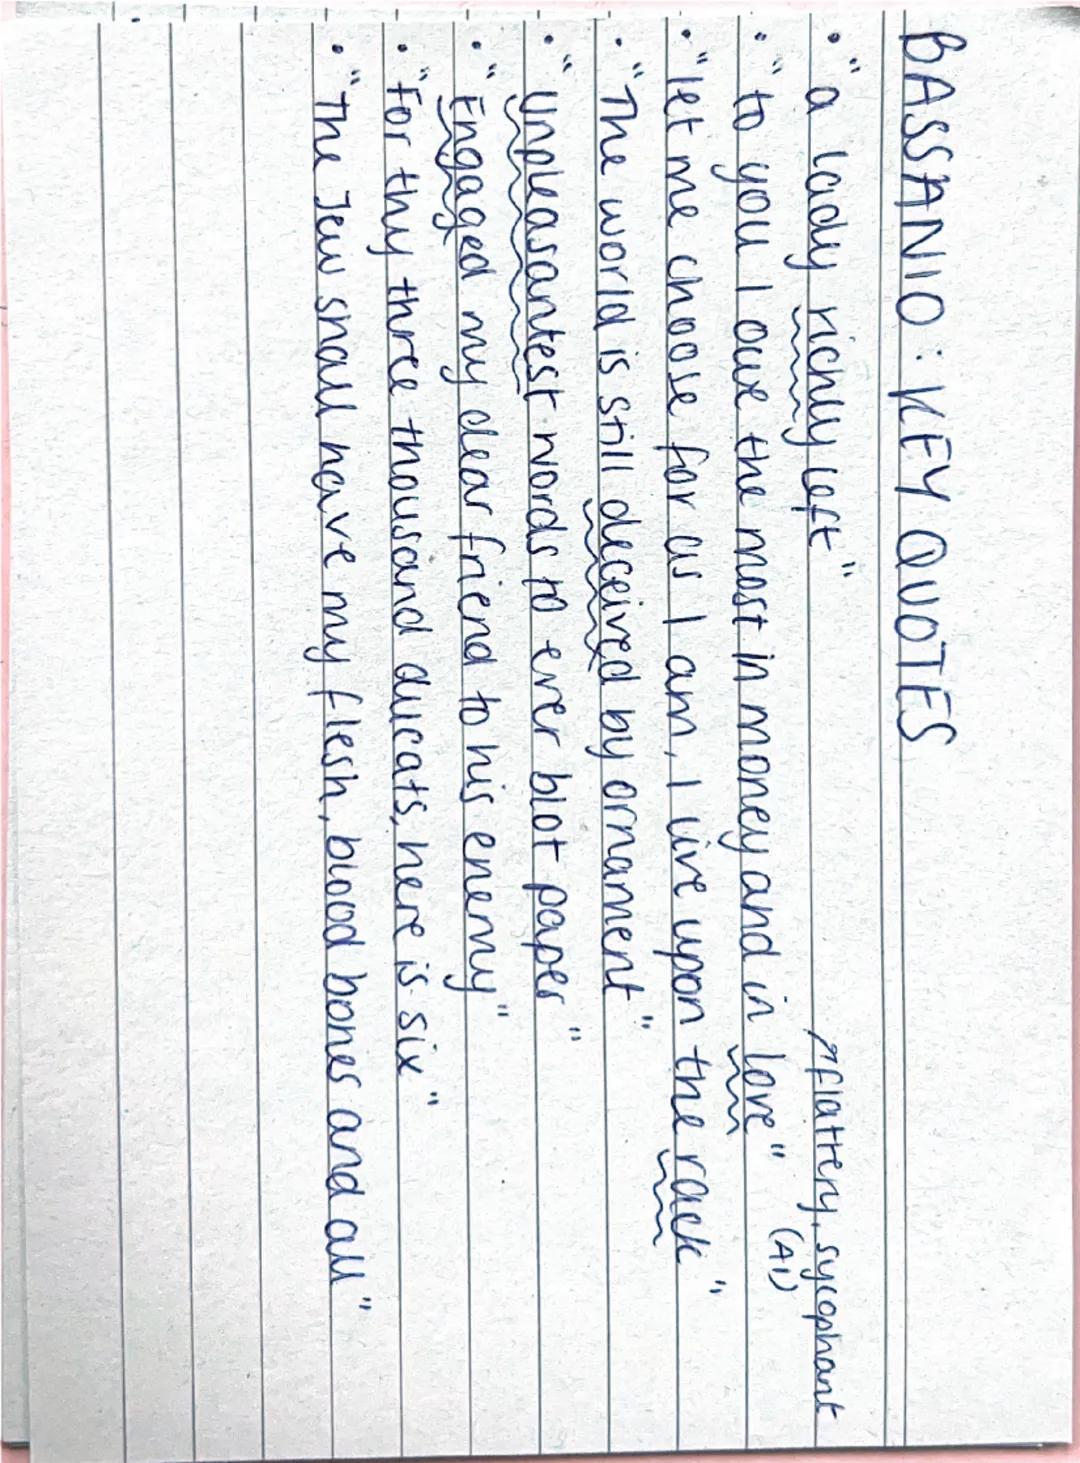 BASSANIO: KEY QUOTES
↗flattery, sycophant
• "a lady richly left"
(A1)
• "to you I owe the most in money and in love"
• "let me choose for as I am, I live upon the rack"
• "The world is still deceived by ornament"
• "Unpleasantest words to ever blot paper"
• "Engaged my dear friend to his enemy"
• "For thy three thousand ducats, here is six"
• "The Jew shall have my flesh, blood bones and all"